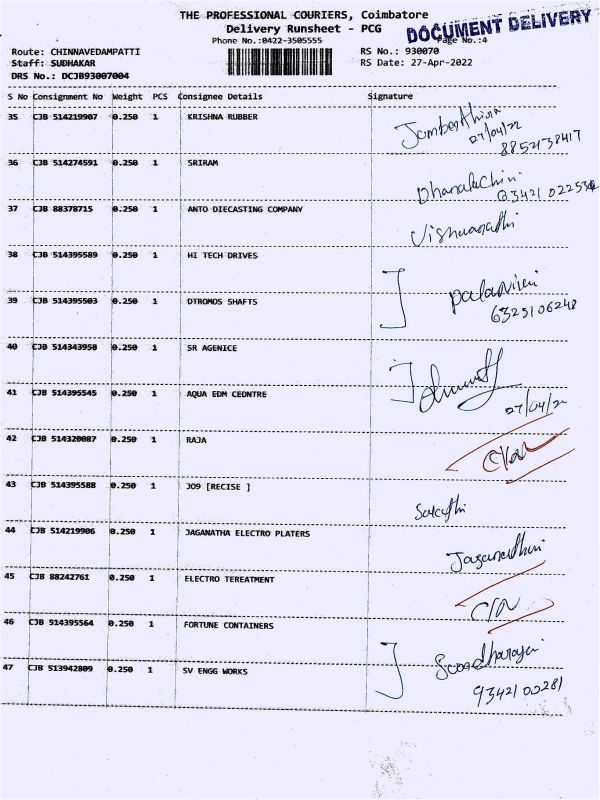 THE PROFESSIONAL COURIERS, Coimbatore
Delivery Runsheet - PCG
DOCUMENT DELIVERY
Phone No.:0422-3505555
Page No.:4
Route: CHINNAVEDAMPATTI
RS No.: 930070
Staff: SUDHAKAR
RS Date: 27-Apr-2022
DRS No.: DCJB93007004
S No Consignment No Weight PCS Consignee Details Signature
35 CJB 514219907 0.250 1 KRISHNA RUBBER
27/04/22
36 CJB 514274591 0.250 1 SRIRAM
37 CJB 88378715 0.250 1 ANTO DIECASTING COMPANY
38 CJB 514395589 0.250 1 HI TECH DRIVES
39 CJB 514395503 0.250 1 DTROMOS SHAFTS
6325106248
40 CJB 514343950 0.250 1 SR AGENICE
41 CJB 514395545 0.250 1 AQUA EDM CEDNTRE
27/04/22
42 CJB 514320087 0.250 1 RAJA
43 CJB 514395588 0.250 1 JO9 [RECISE ]
44 CJB 514219906 0.250 1 JAGANATHA ELECTRO PLATERS
45 CJB 88242761 0.250 1 ELECTRO TEREATMENT
46 CJB 514395564 0.250 1 FORTUNE CONTAINERS
47 CJB 513942809 0.250 1 SV ENGG WORKS
9342100281